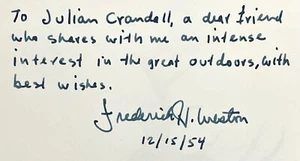 To Julian Crandall, a dear friend
who shares with me an intense
interest in the great outdoors, with
best wishes.
Frederick H. Weston
12/15/54